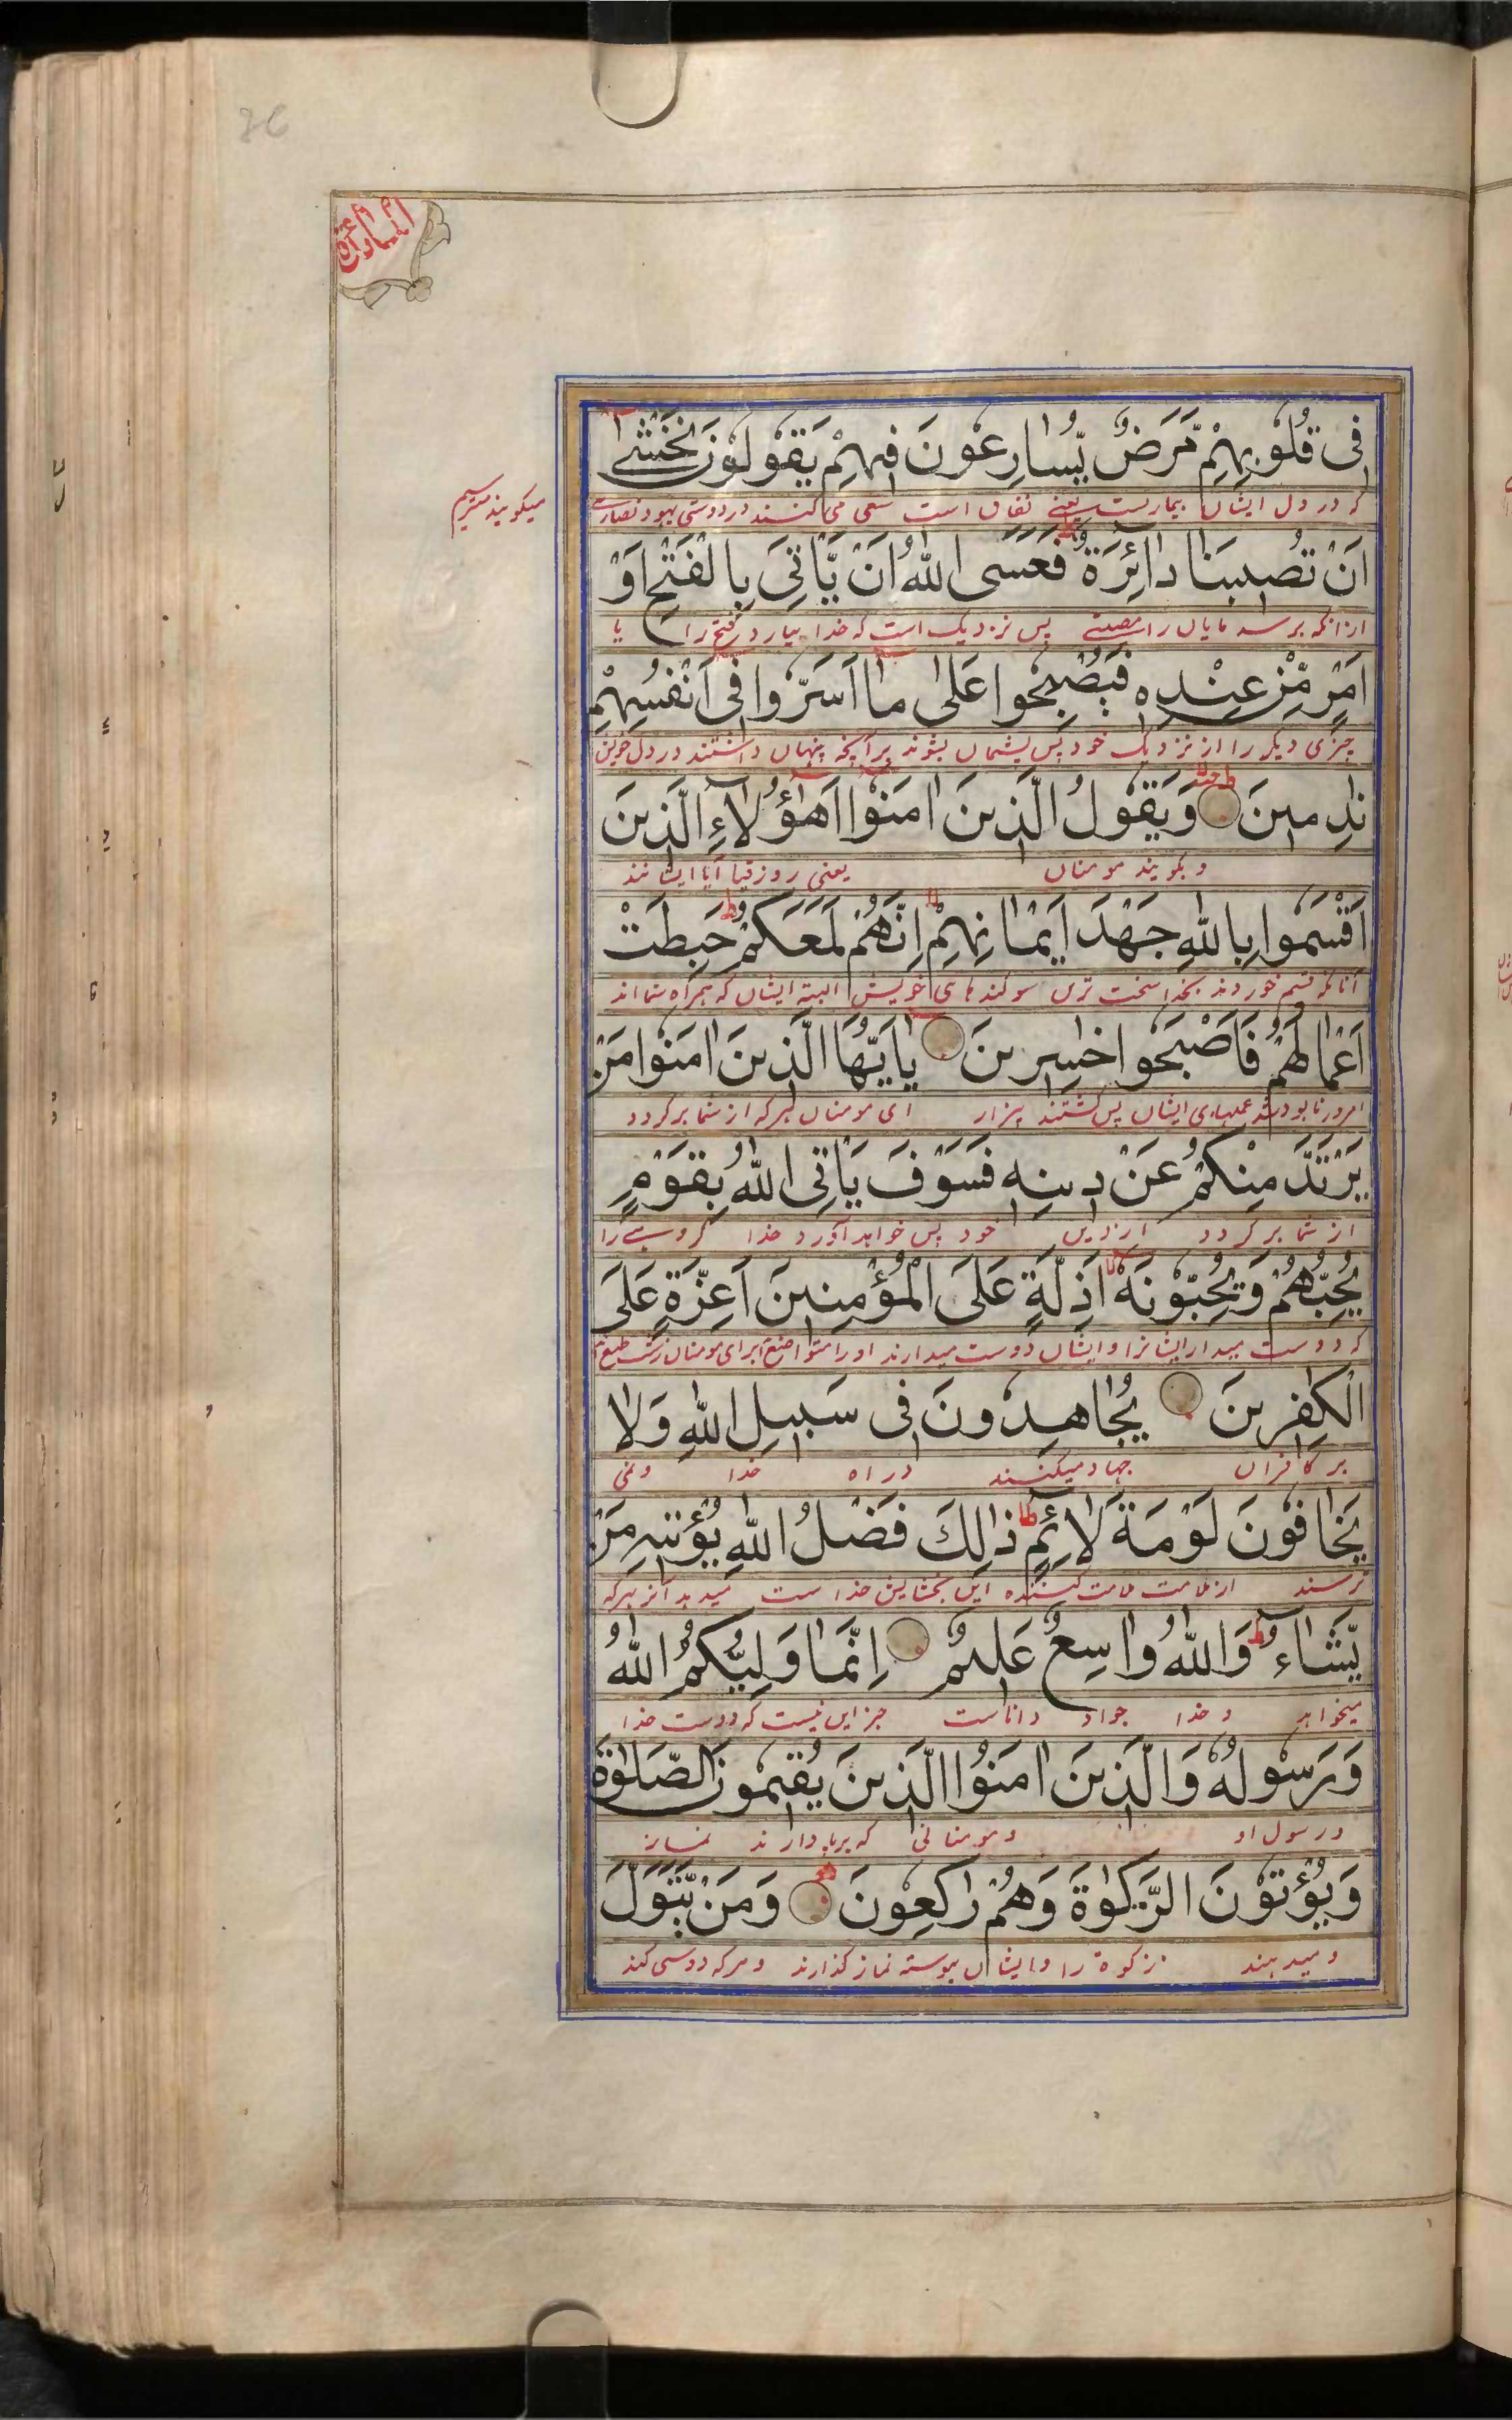 المائدة
فِی قُلُوبِهِمْ مَّرَضٌ یُّسَارِعُونَ فِیهِمْ یَقُولُونَ نَخْشٰی
که در دل ایشان بیماریست یعنے نفاق است سعی می کنند در دوستی یهود نصارے
میگویند میترسیم
اَنْ تُصِیبَنَا دَآئِرَةٌ فَعَسَی اللّٰهُ اَنْ یَّاْتِیَ بِالْفَتْحِ اَوْ
ازانکه برسد مایان را مصیبتے پس نزدیک است که خدا بیارد فتح را یا
اَمْرٍ مِّنْ عِنْدِهٖ فَیُصْبِحُوا عَلٰی مَآ اَسَرُّوا فِیٓ اَنْفُسِهِمْ
چیزی دیگر را از نزدیک خود پس پشیمان بشوند بر آنچه پنهان داشتند در دل خویش
نٰدِمِینَ وَیَقُولُ الَّذِینَ اٰمَنُوٓا اَهٰٓؤُلَآءِ الَّذِینَ
و بگویند مومنان یعنی روز قیا آیا اینانند
اَقْسَمُوا بِاللّٰهِ جَهْدَ اَیْمَانِهِمْ اِنَّهُمْ لَمَعَكُمْ حَبِطَتْ
آنانکه قسم خوردند بخدا سخت ترین سوگندهای خویش البته ایشان که همراه شما اند
اَعْمَالُهُمْ فَاَصْبَحُوا خٰسِرِینَ یٰٓاَیُّهَا الَّذِینَ اٰمَنُوا مَنْ
امروز نابود شد عملهای ایشان پس گشتند ای مومنان هر که از شما برگردد
یَرْتَدَّ مِنْكُمْ عَنْ دِینِهٖ فَسَوْفَ یَاْتِی اللّٰهُ بِقَوْمٍ
از شما برگردد از دین خود پس خواهد آورد خدا گروهے را
یُحِبُّهُمْ وَیُحِبُّونَهٗٓ اَذِلَّةٍ عَلَی الْمُؤْمِنِینَ اَعِزَّةٍ عَلَی
که دوست میدارد ایشانرا و ایشان دوست میدارند او را متواضع برای مومنان
الْكٰفِرِینَ یُجَاهِدُونَ فِی سَبِیلِ اللّٰهِ وَلَا
بر کافران جهاد میکنند در راه خدا و نمی
یَخَافُونَ لَوْمَةَ لَآئِمٍ ذٰلِكَ فَضْلُ اللّٰهِ یُؤْتِیهِ مَنْ
ترسند از ملامت ملامت کننده این بخشایش خداست میدهد آنرا بهر که
یَّشَآءُ وَاللّٰهُ وَاسِعٌ عَلِیمٌ اِنَّمَا وَلِیُّكُمُ اللّٰهُ
میخواهد و خدا جواد داناست جز این نیست که دوست خدا
وَرَسُولُهٗ وَالَّذِینَ اٰمَنُوا الَّذِینَ یُقِیمُونَ الصَّلٰوةَ
و رسول او و مومنانی که برپا دارند نماز
وَیُؤْتُونَ الزَّكٰوةَ وَهُمْ رٰكِعُونَ وَمَنْ یَّتَوَلَّ
و میدهند زکوة را و ایشان پیوسته نماز گذارند و هر که دوستی کند